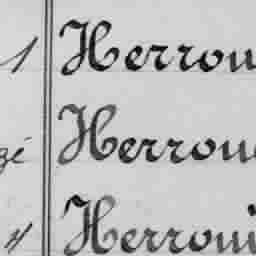 1 Herrou
gé Herrou
4 Herroui